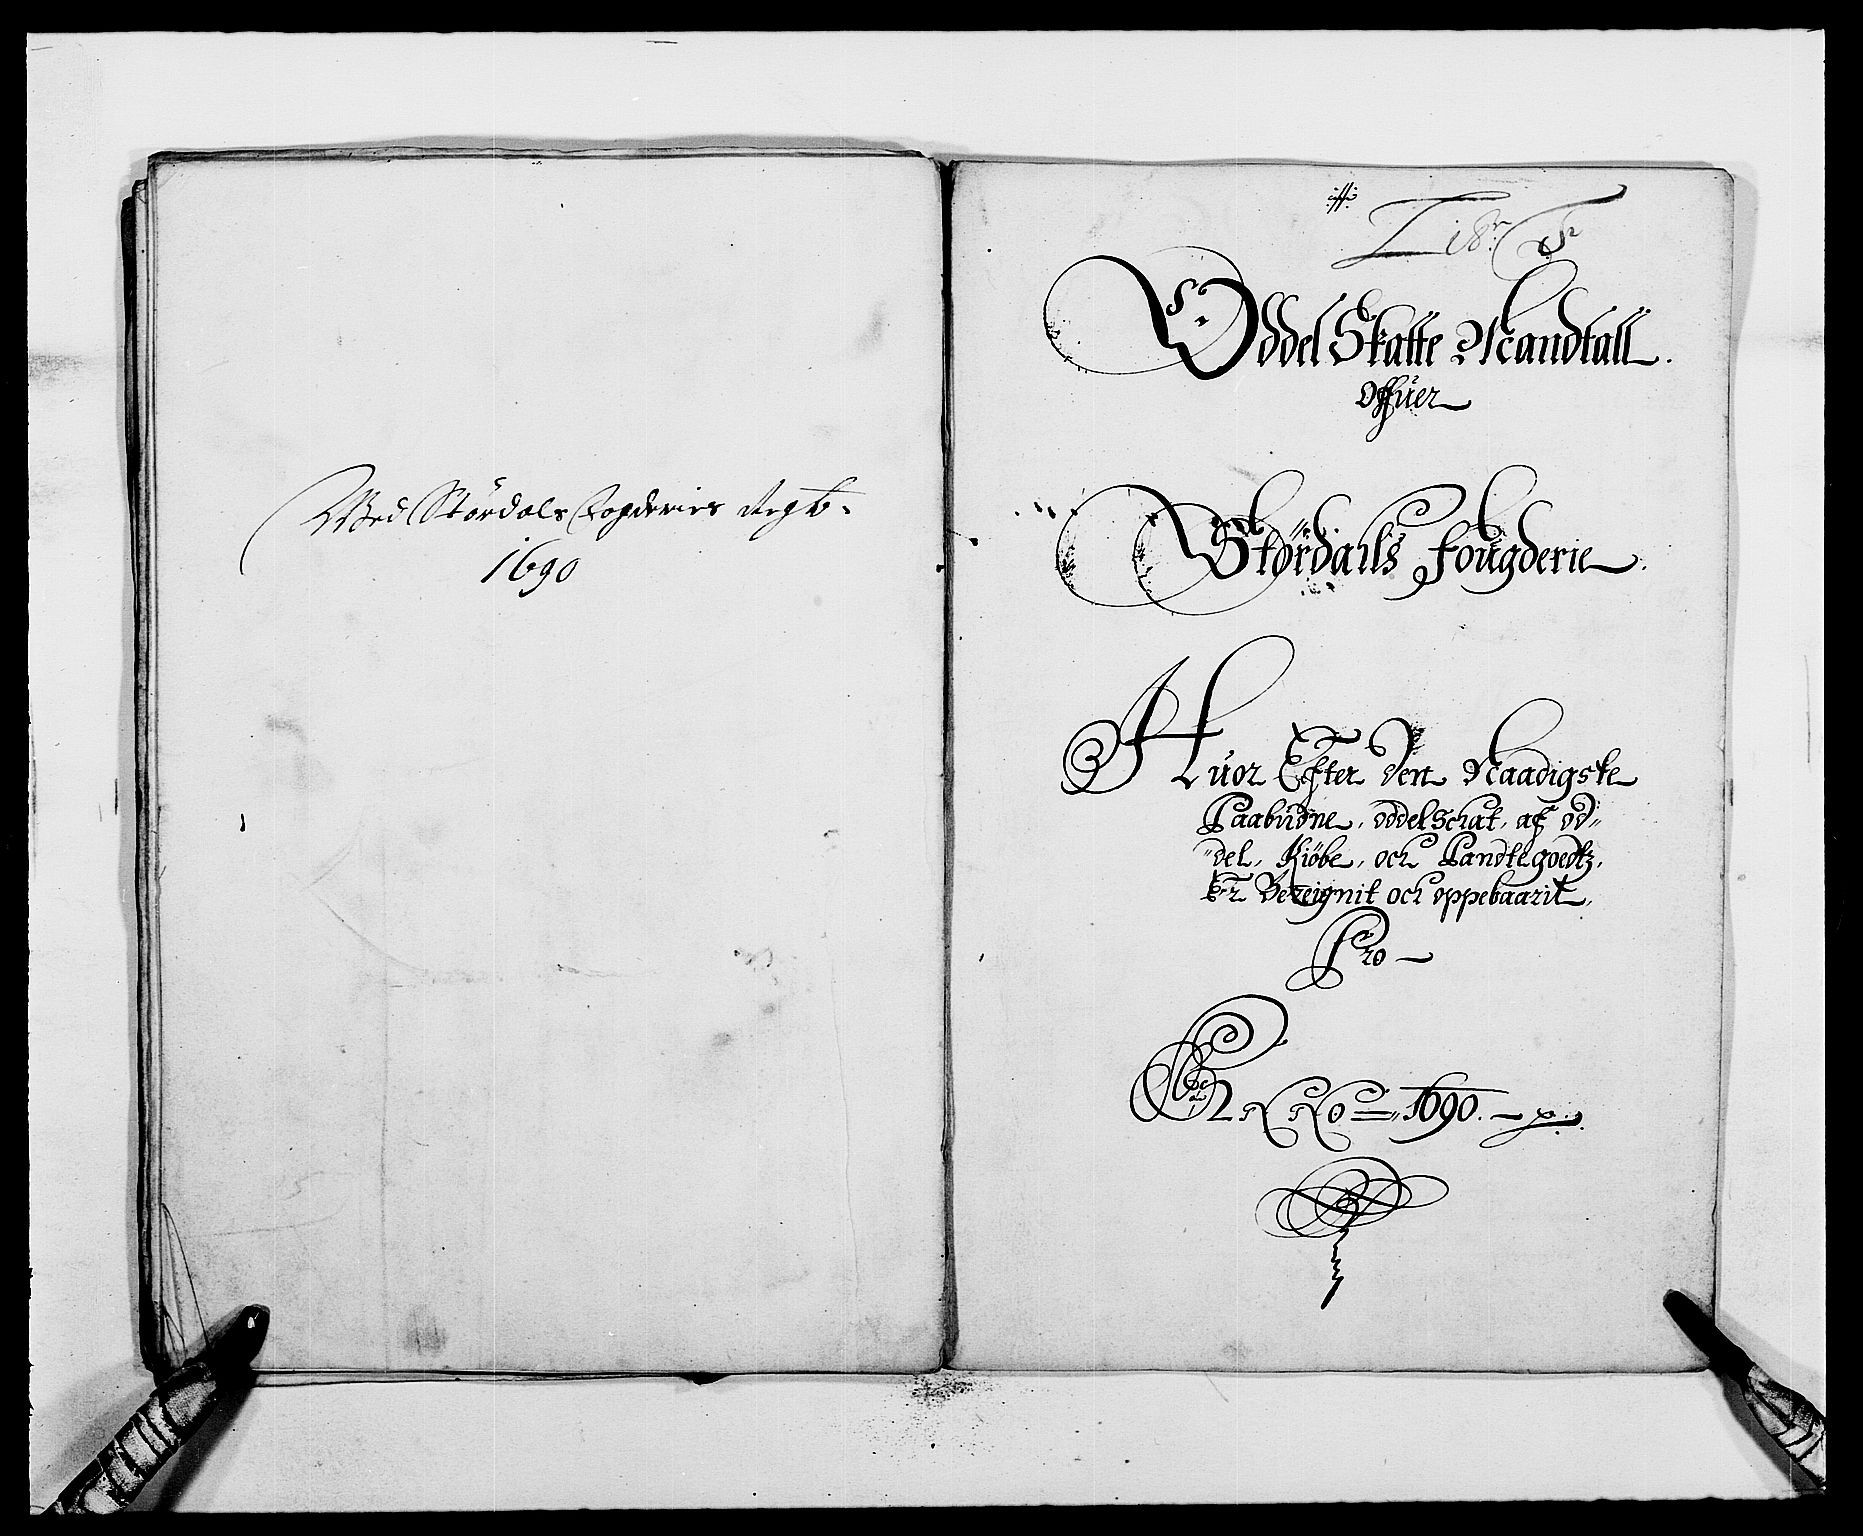 Med Stördals Fogderies Regtb.
1690
Oddel Skatte Mandtall.
offuer
Stördalls Fougderie.
Huor Effter den Naadigste
Paabudne, oddelschat, aff od„
„del, Kiöbe, och Pandtegoedtz,
Er Bereignit och oppebaarit,
Pro
ANNO 1690.